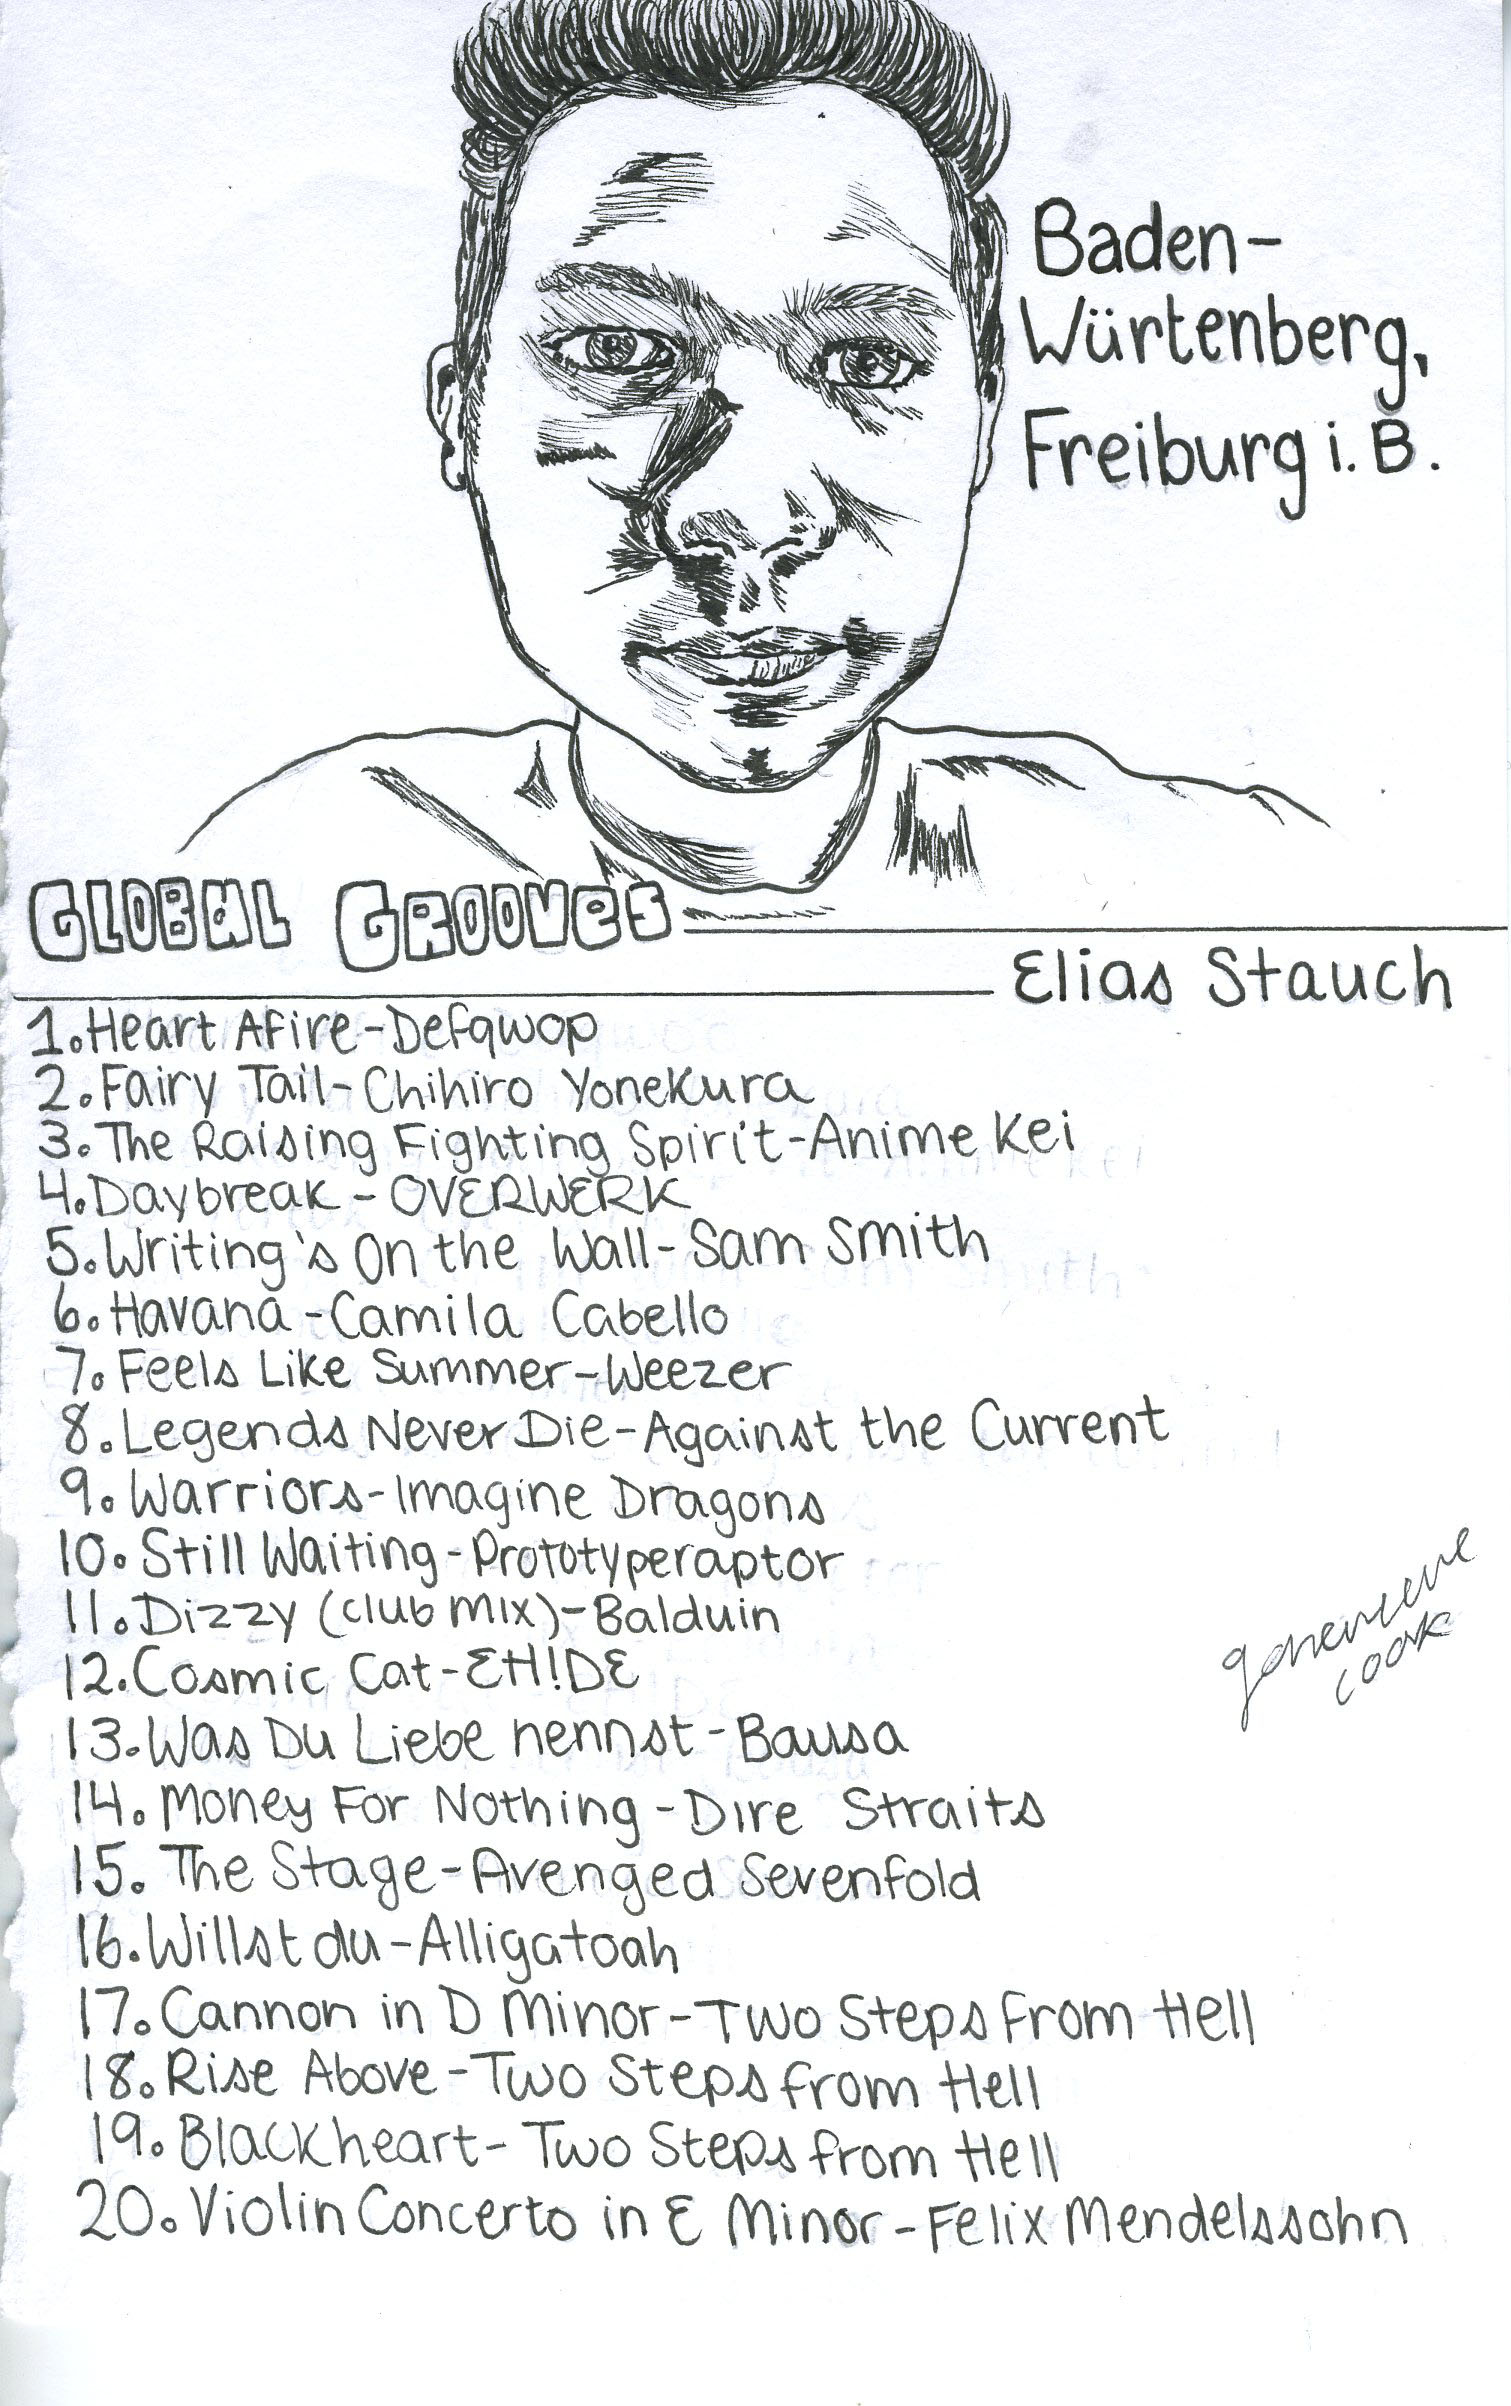 Baden-
Würtenberg,
Freiburg i. B.
GLOBAL GROOVES
Elias Stauch
1. Heart Afire-Defqwop
2. Fairy Tail-Chihiro Yonekura
3. The Raising Fighting Spirit-Anime Kei
4. Daybreak - OVERWERK
5. Writing's On the Wall-Sam Smith
6. Havana-Camila Cabello
7. Feels Like Summer-Weezer
8. Legends Never Die-Against the Current
9. Warriors-Imagine Dragons
10. Still Waiting-Prototyperaptor
11. Dizzy (club mix)-Balduin
12. Cosmic Cat-EH!DE
13. Was Du Liebe nennst-Bausa
14. Money For Nothing-Dire Straits
15. The Stage-Avenged Sevenfold
16. Willst du-Alligatoah
17. Cannon in D Minor-Two Steps From Hell
18. Rise Above-Two Steps from Hell
19. Blackheart-Two Steps from Hell
20. Violin Concerto in E Minor-Felix Mendelssohn
genevieve
cook